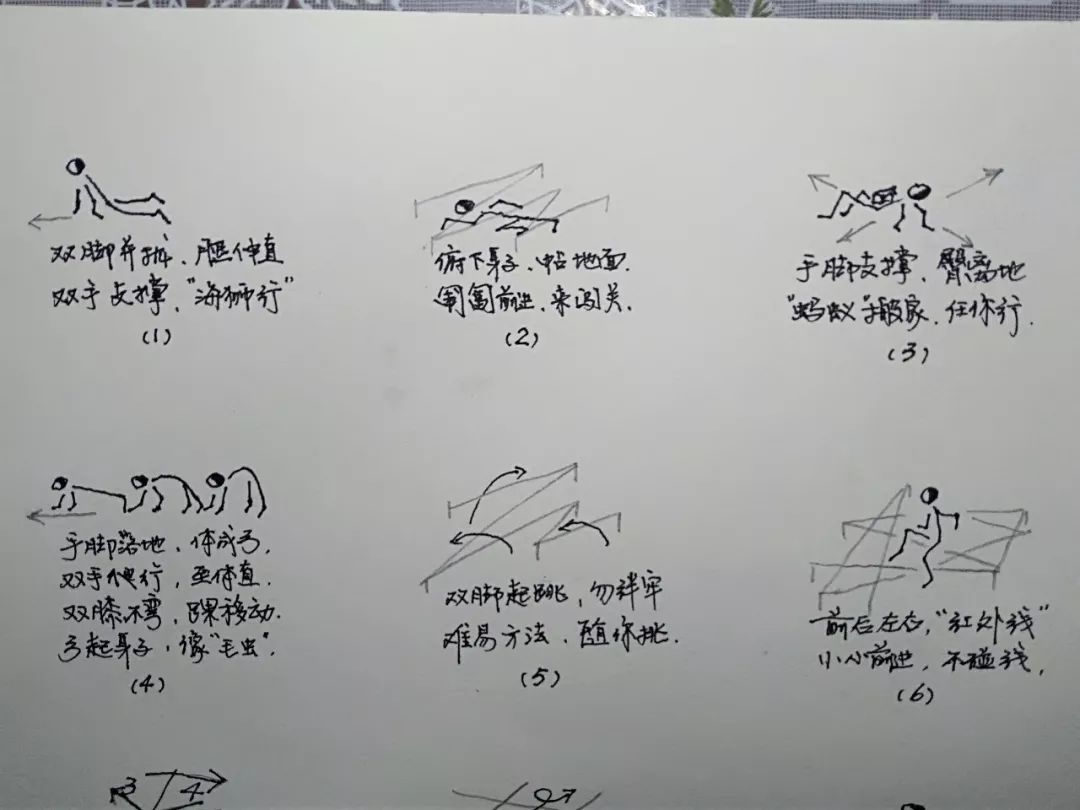 双脚并拢、腿伸直
双手支撑,“海狮行”
(1)
俯下身子、中占地面.
匍匐前进、来闯关.
(2)
手脚支撑、臀离地
“蚂蚁”搬家、任你行.
(3)
手脚落地、体成弓,
双手爬行,至体直.
双膝不弯,踝移动.
弓起身子,像“毛虫”.
(4)
双脚起跳,勿绊牢
难易方法、随你挑.
(5)
前后左右,“红外线”
小心前进,不碰线,
(6)
3 4